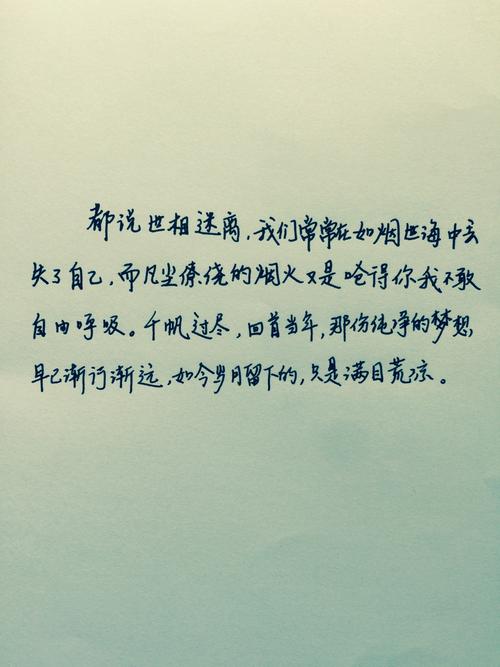 都说世相迷离,我们常常在如烟世海中丢
失了自己,而凡尘缭绕的烟火又是呛得你我不敢
自由呼吸。千帆过尽,回首当年,那份纯净的梦想,
早已渐行渐远,如今岁月留下的,只是满目荒凉。